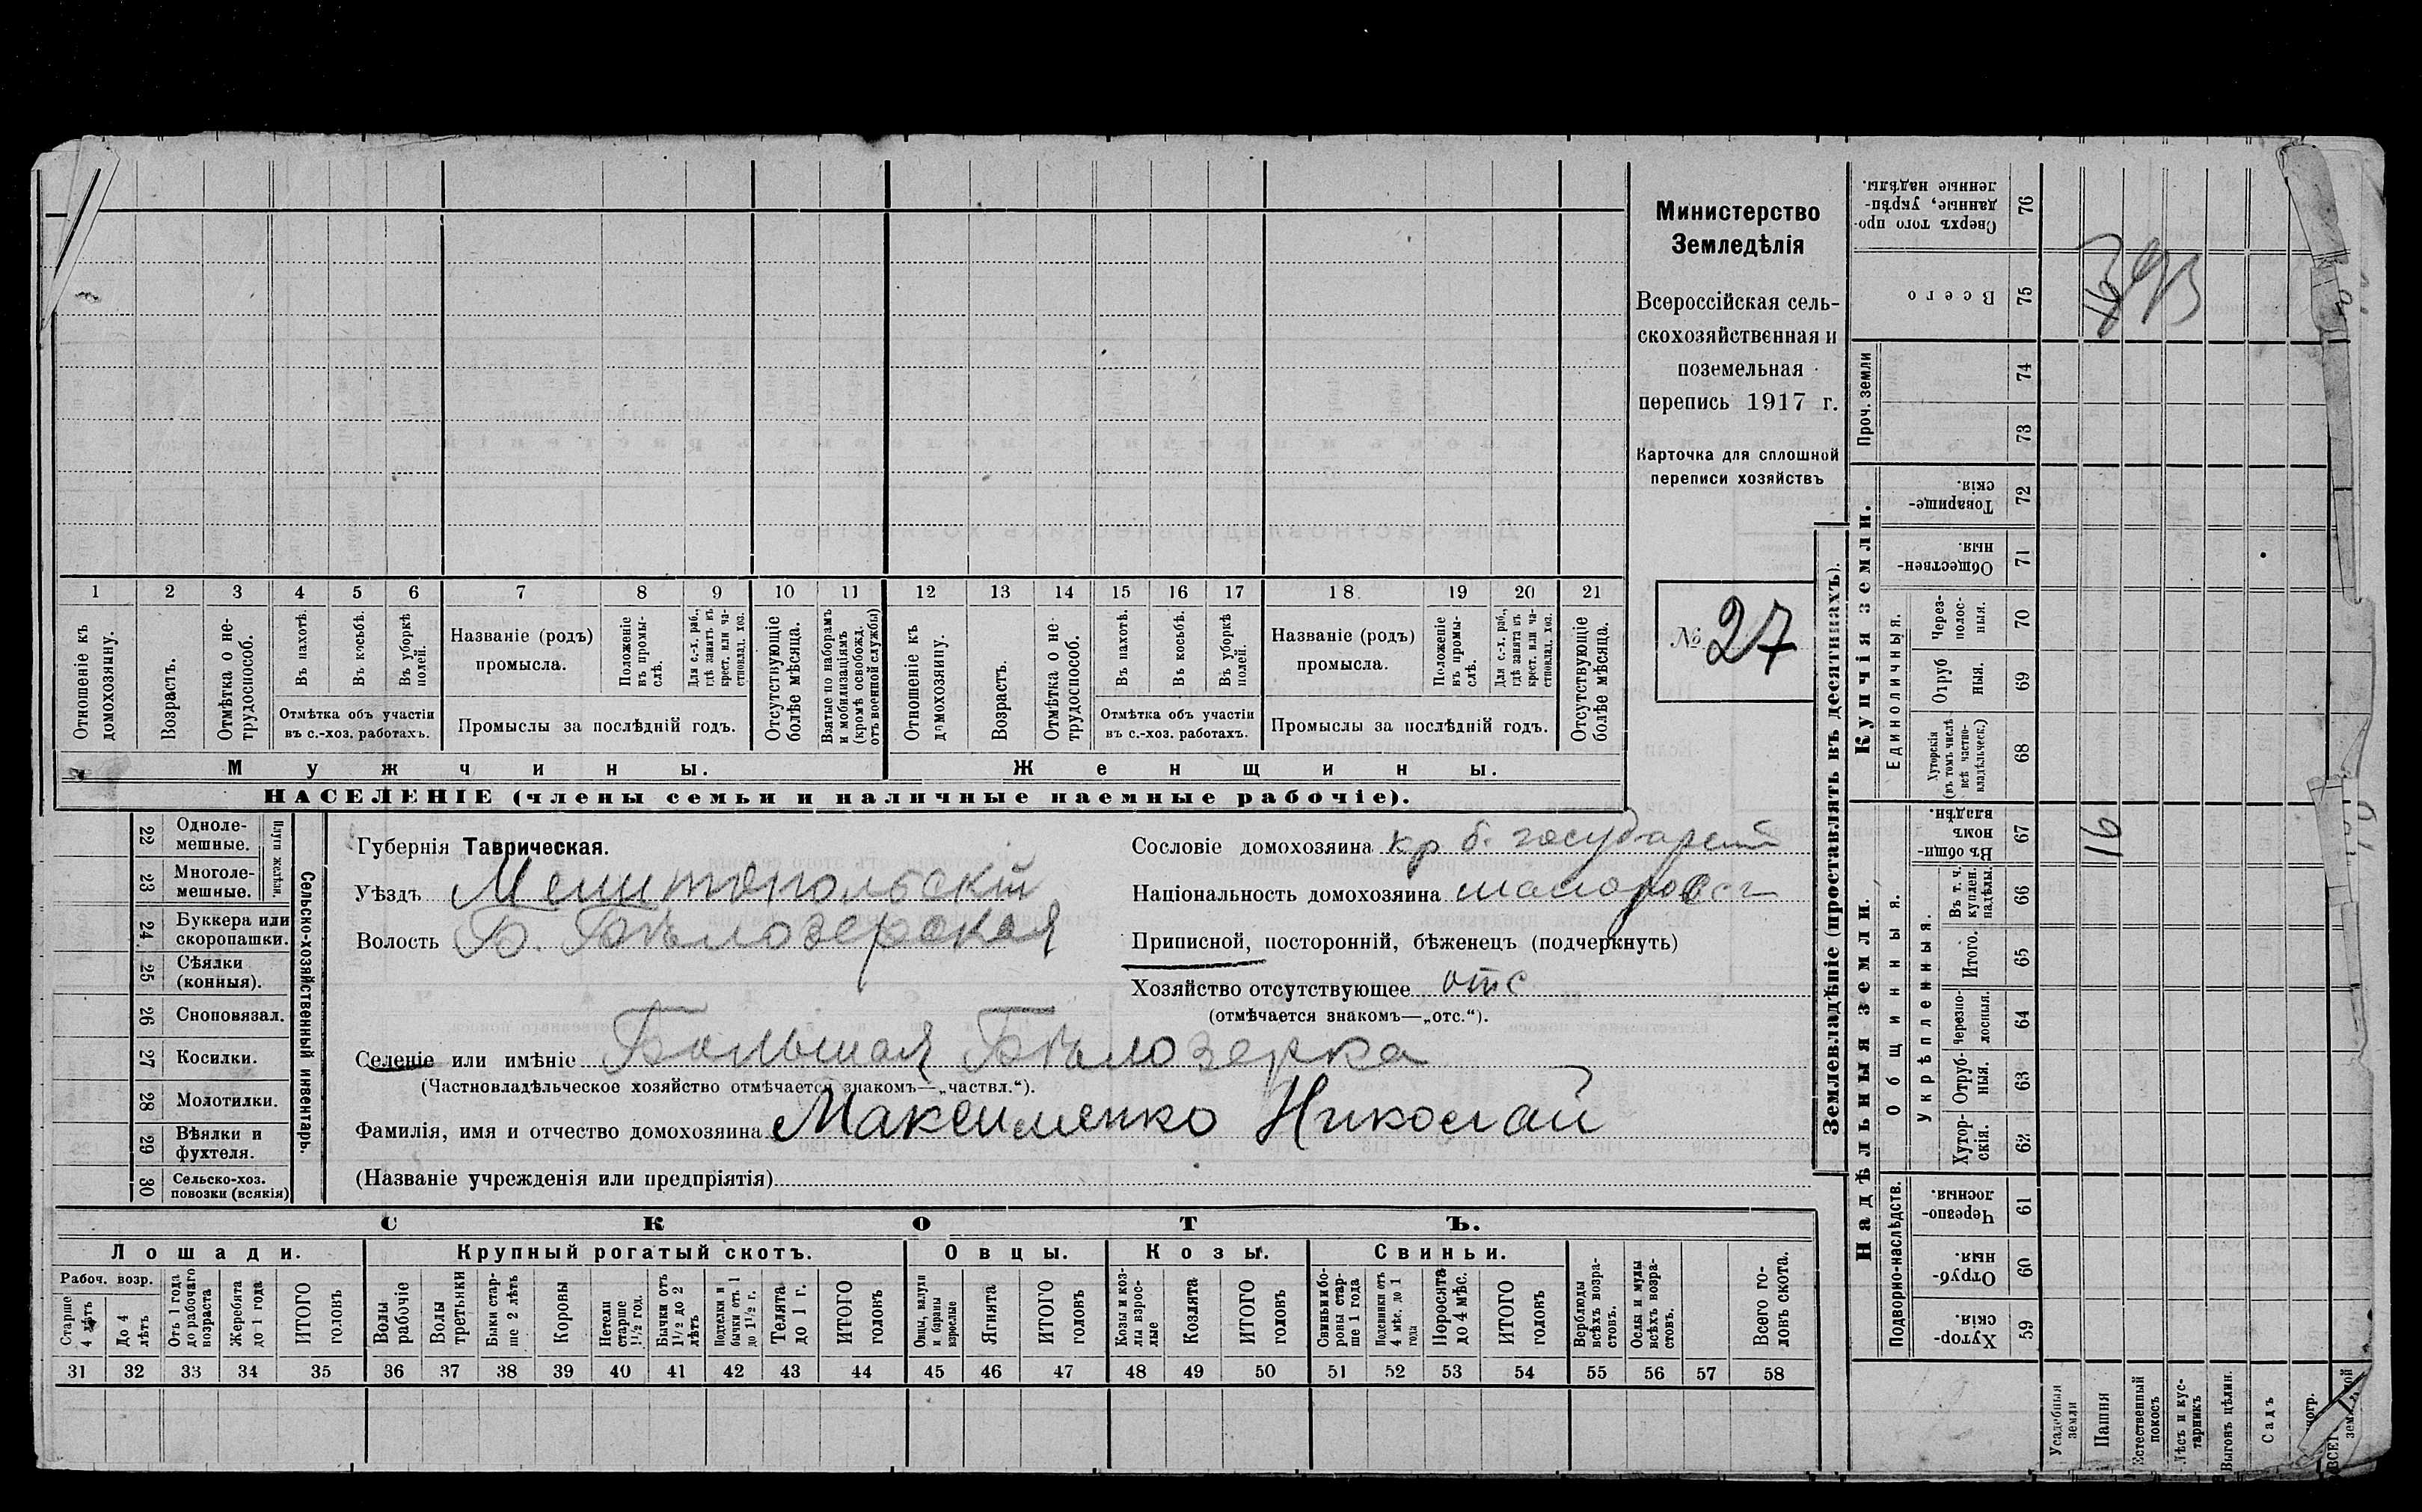 Министерство
Земледѣлія
Всероссійская сель-
скохозяйственная и
поземельная
перепись 1917 г.
Карточка для сплошной
переписи хозяйствъ
№ 27
1 2 3 4 5 6 7 8 9 10 11 12 13 14 15 16 17 18 19 20 21
Отношеніе къ домохозяину.
Возрастъ.
Отмѣтка о не-трудоспособ.
Въ пахотѣ.
Въ косьбѣ.
Въ уборкѣ полей.
Отмѣтка объ участіи
въ с.-хоз. работахъ.
Названіе (родъ)
промысла.
Положеніе въ промы-слѣ.
Для с.-х. раб., гдѣ занятъ въ крест. или ча-стновлад. хоз.
Промыслы за послѣдній годъ.
Отсутствующіе болѣе мѣсяца.
Взятые по наборамъ и мобилизаціямъ (кромѣ освобожд. отъ военной службы)
Отношеніе къ домохозяину.
Возрастъ.
Отмѣтка о не-трудоспособ.
Въ пахотѣ.
Въ косьбѣ.
Въ уборкѣ полей.
Отмѣтка объ участіи
въ с.-хоз. работахъ.
Названіе (родъ)
промысла.
Положеніе въ промы-слѣ.
Для с.-х. раб., гдѣ занята въ крест. или ча-стновлад. хоз.
Промыслы за послѣдній годъ.
Отсутствующіе болѣе мѣсяца.
Мужчины. Женщины.
НАСЕЛЕНІЕ (члены семьи и наличные наемные рабочіе).
22 Одноле-мешные.
23 Многоле-мешные.
Плуги желѣзн.
24 Буккера или скоропашки.
25 Сѣялки (конныя).
26 Сноповязал.
27 Косилки.
28 Молотилки.
29 Вѣялки и фухтеля.
30 Сельско-хоз. повозки (всякія)
Сельско-хозяйственный инвентарь.
Губернія Таврическая.
Уѣздъ Мелитопольскій
Волость Б. Бѣлозерская
Сословіе домохозяина кр б. государст
Національность домохозяина малоросс
Приписной, посторонній, бѣженецъ (подчеркнуть)
Хозяйство отсутствующее отс
(отмѣчается знакомъ—„отс.“).
Селеніе или имѣніе Большая Бѣлозерка
(Частновладѣльческое хозяйство отмѣчается знакомъ—„частвл.“).
Фамилія, имя и отчество домохозяина Максименко Николай
(Названіе учрежденія или предпріятія)
СКОТЪ.
Лошади. Крупный рогатый скотъ. Овцы. Козы. Свиньи.
Рабоч. возр.
Старше 4 лѣтъ
До 4 лѣтъ
Отъ 1 года до рабочаго возраста
Жеребята до 1 года
ИТОГО головъ
Волы рабочіе
Волы третьяки
Быки стар-ше 2 лѣтъ
Коровы
Нетели старше 1½ год.
Бычки отъ 1½ до 2 лѣтъ
Подтелки и бычки отъ 1 до 1½ г.
Телята до 1 г.
ИТОГО головъ
Овцы, валухи и бараны взрослые
Ягнята
ИТОГО головъ
Козы и коз-лы взрос-лые
Козлята
ИТОГО головъ
Свиньи и бо-ровы стар-ше 1 года
Подсвинки отъ 4 мѣс. до 1 года
Поросята до 4 мѣс.
ИТОГО головъ
Верблюды всѣхъ возра-стовъ.
Ослы и мулы всѣхъ возра-стовъ.
Всего го-ловъ скота.
31 32 33 34 35 36 37 38 39 40 41 42 43 44 45 46 47 48 49 50 51 52 53 54 55 56 57 58
Землевладѣніе (проставлять въ десятинахъ).
Сверхъ того про-данные, укрѣп-ленные надѣлы. 76
Всего 75
Проч. земли 74 73
Купчія земли.
Товарище-скія. 72
Обществен-ныя. 71
Единоличныя.
Через-полос-ныя. 70
Отруб ныя. 69
Хуторскія (въ томъ числѣ всѣ частно-владѣльческ.) 68
Надѣльныя земли.
Общинныя.
Въ общи-номъ владѣн. 67 16
Укрѣпленныя.
Въ т. ч. куплен. надѣлы. 66
Итого. 65
Черезпо-лосныя. 64
Отруб-ныя. 63
Хутор-скія. 62
Подворно-наслѣдств.
Черезпо-лосныя. 61
Отруб-ныя. 60
Хутор-скія. 59
Усадебныя земли
Пашня
Естественный покосъ
Лѣсъ и кус-тарникъ
Выгонъ цѣлин.
Садъ